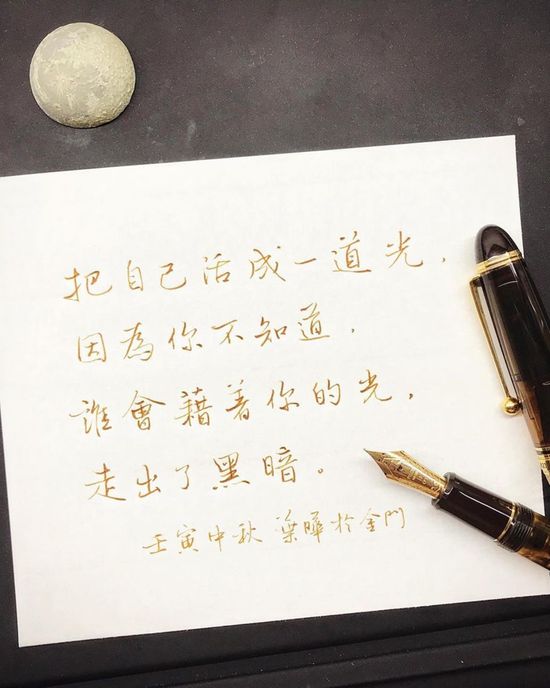 把自己活成一道光,
因為你不知道,
誰會藉著你的光,
走出了黑暗。
壬寅中秋 梁曄於金門